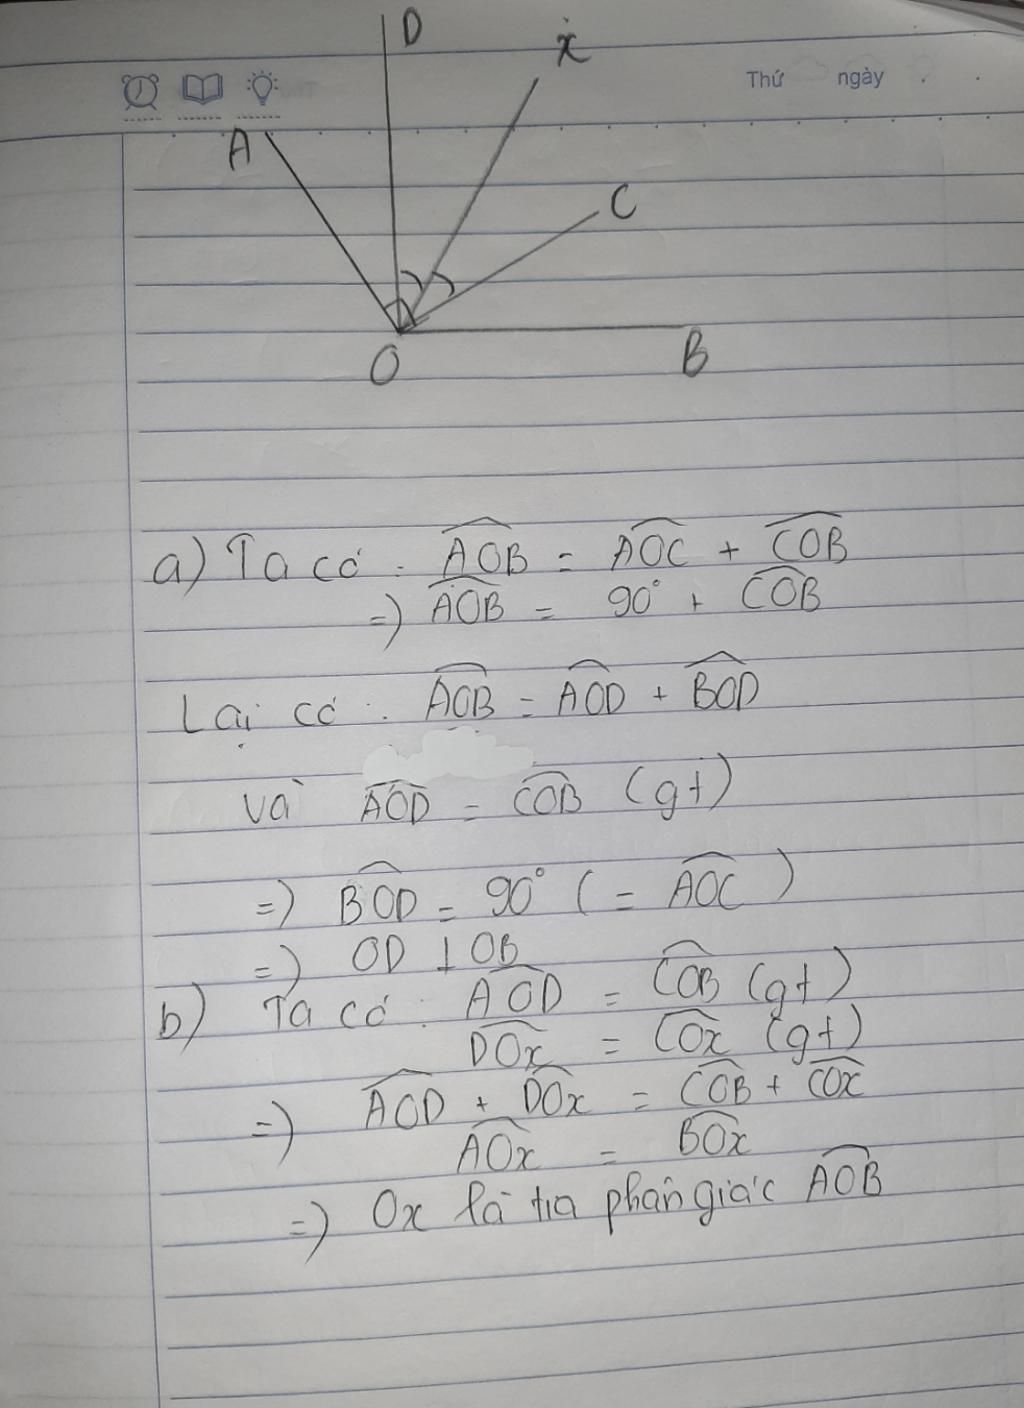 D
x
Thứ ngày
A
C
O
B
a) Ta có : \widehat{AOB} = \widehat{AOC} + \widehat{COB}
=) \widehat{AOB} = 90° + \widehat{COB}
Lại có : \widehat{AOB} = \widehat{AOD} + \widehat{BOD}
và \widehat{AOD} = \widehat{COB} (gt)
=) \widehat{BOD} = 90° ( = \widehat{AOC} )
=) OD ⊥ OB
b) Ta có : \widehat{AOD} = \widehat{COB} (gt)
\widehat{DOx} = \widehat{COx} (gt)
=) \widehat{AOD} + \widehat{DOx} = \widehat{COB} + \widehat{COx}
\widehat{AOx} = \widehat{BOx}
=) Ox là tia phân giác \widehat{AOB}